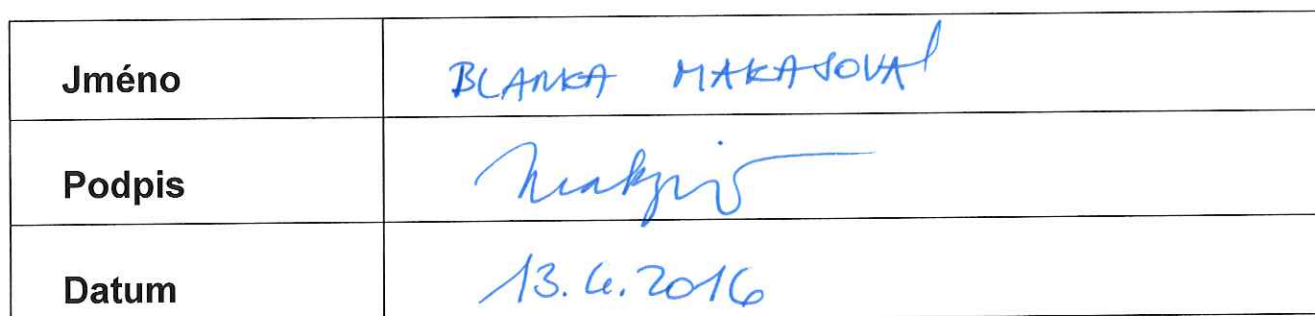 Jméno BLANKA MAKAJOVÁ
Podpis
Datum 13.6.2016